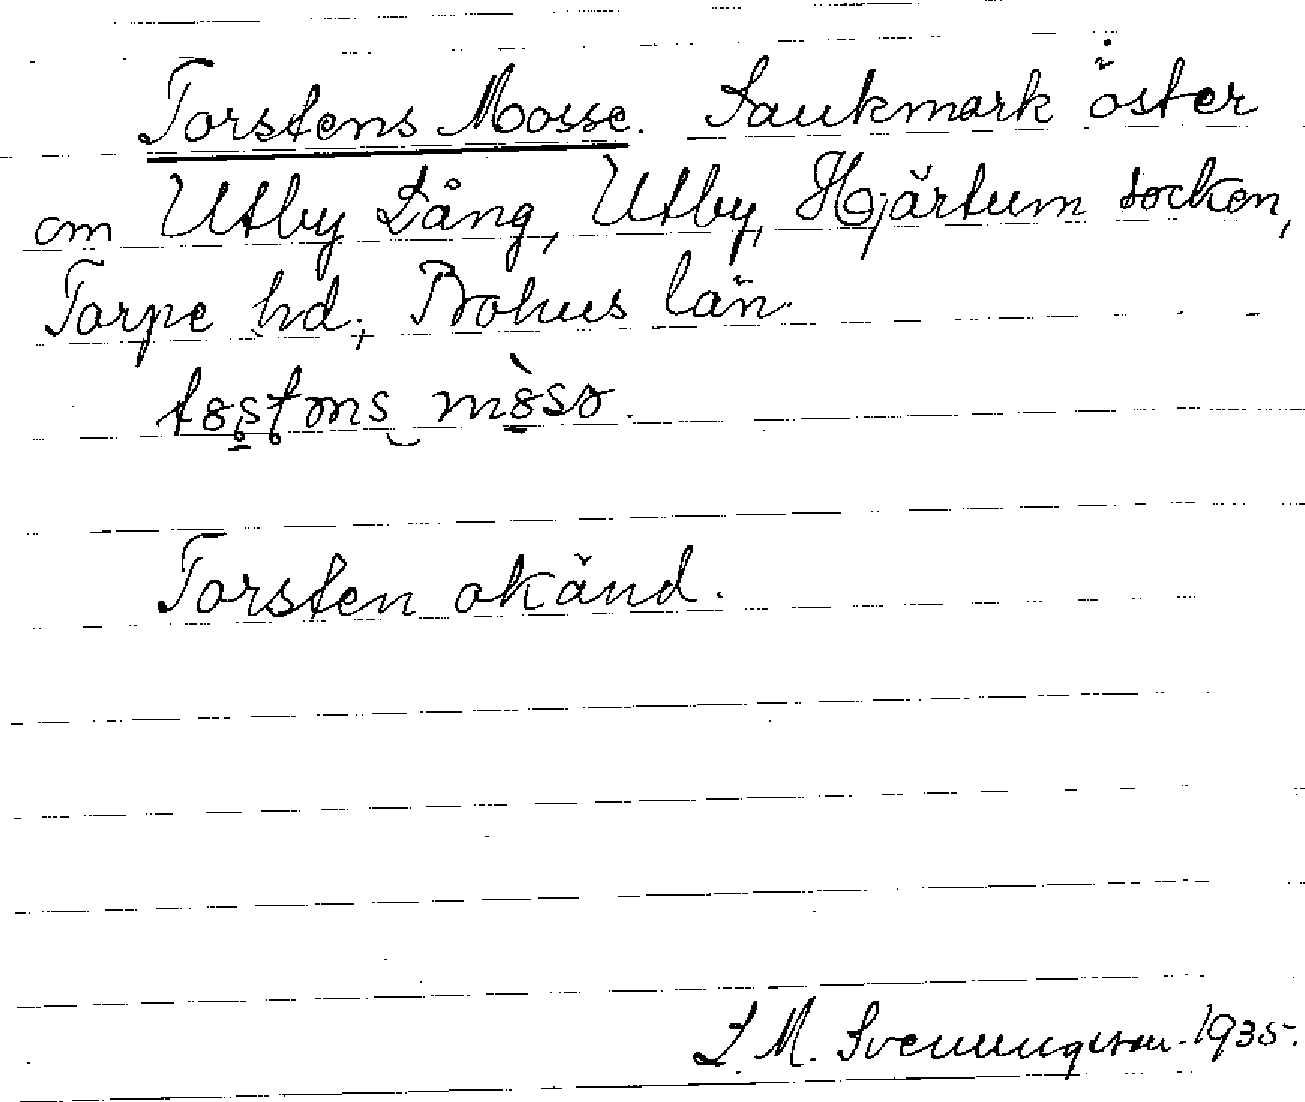 Torstens Mosse. Sankmark öster
om Utby Lång, Utby, Hjärtum socken,
Torpe hd., Bohus län.
Torsten okänd.
S. M. Svenungsson. 1935.